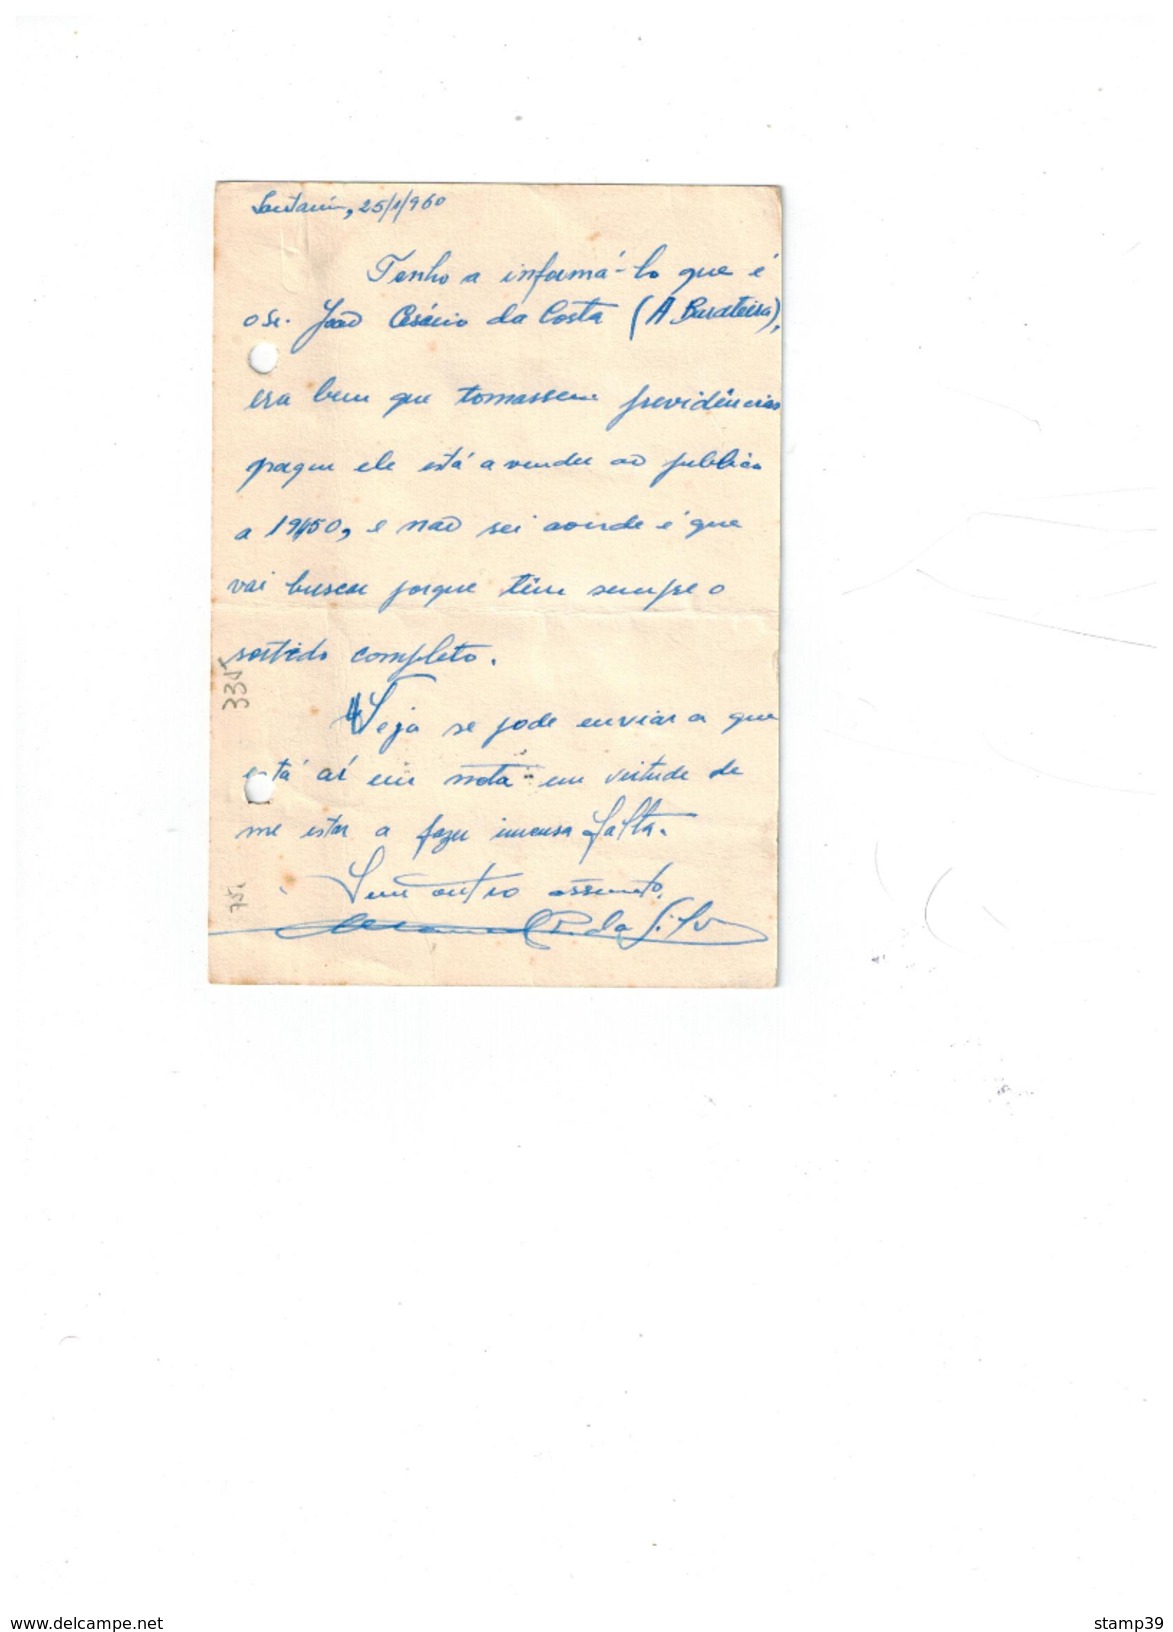 Santarém, 25/1/960
Tenho a informá-lo que é
o Sr. João Cesário da Costa (A Barateira),
era bem que tomassem previdências
porque ele está a vender ao público
a 19$50, e não sei aonde é que
vai buscar porque têm sempre o
sortido completo.
Veja se pode enviar a que
está aí em nota em virtude de
me estar a fazer imensa falta.
Sem outro assunto.
da Silva
335
75
www.delcampe.net
stamp39